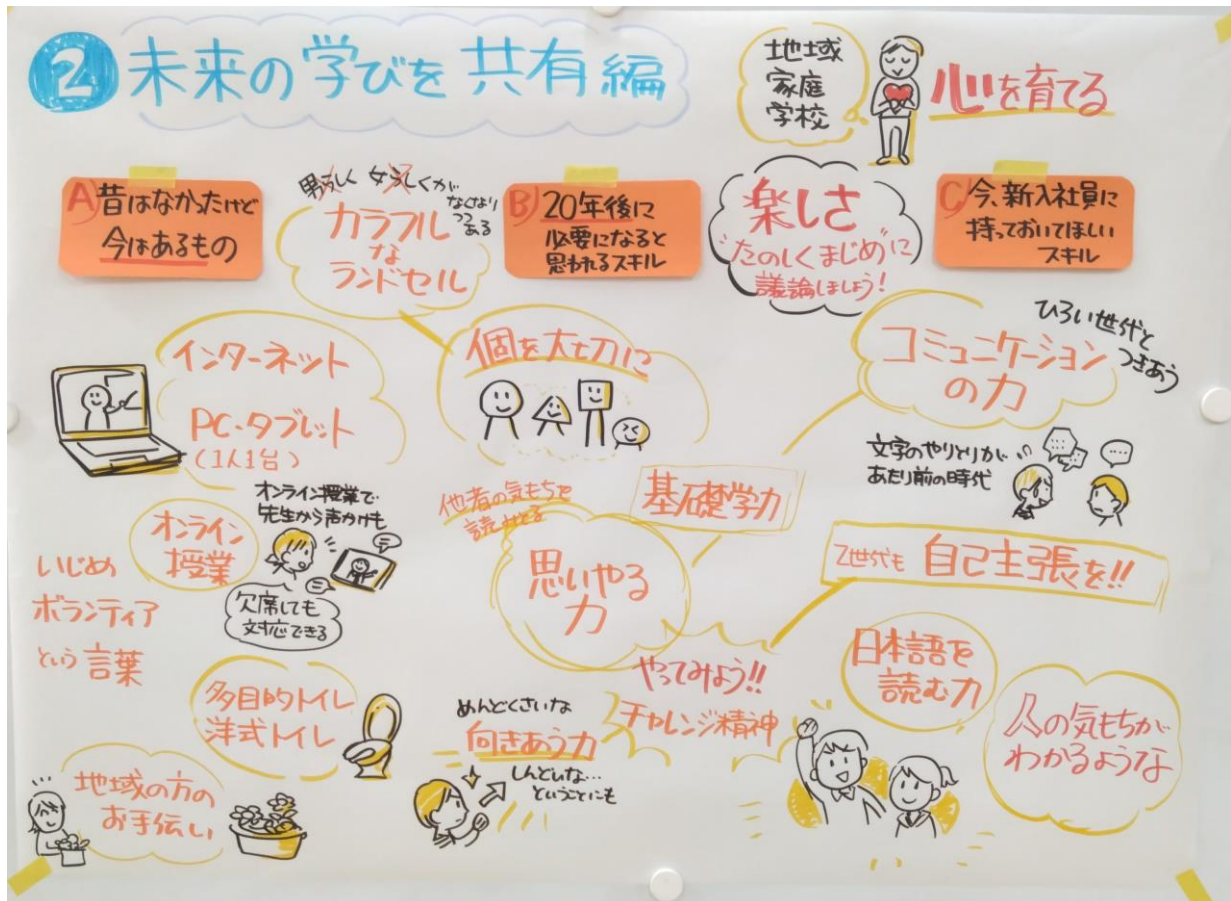 2 未来の学びを共有編
地域
家庭
学校
心を育てる
A) 昔はなかったけど
今はあるもの
男らしく 女らしくが
なくなり
つつ
ある
カラフル
な
ランドセル
B) 20年後に
必要になると
思われるスキル
楽しさ
"たのしくまじめ"に
議論しましょう!
C) 今、新入社員に
持っておいてほしい
スキル
インターネット
PC・タブレット
(1人1台)
個を大切に
コミュニケーション
の力
ひろい世代と
つきあう
文字のやりとりが
あたり前の時代
オンライン
授業
オンライン授業で
先生から声かけも
欠席しても
対応できる
いじめ
ボランティア
という言葉
他者の気もちを
読みとる
思いやる
力
基礎学力
Z世代も 自己主張を!!
多目的トイレ
洋式トイレ
地域の方の
お手伝い
めんどくさいな
向きあう力
しんどいな…
ということにも
やってみよう!!
チャレンジ精神
日本語を
読む力
人の気もちが
わかるような